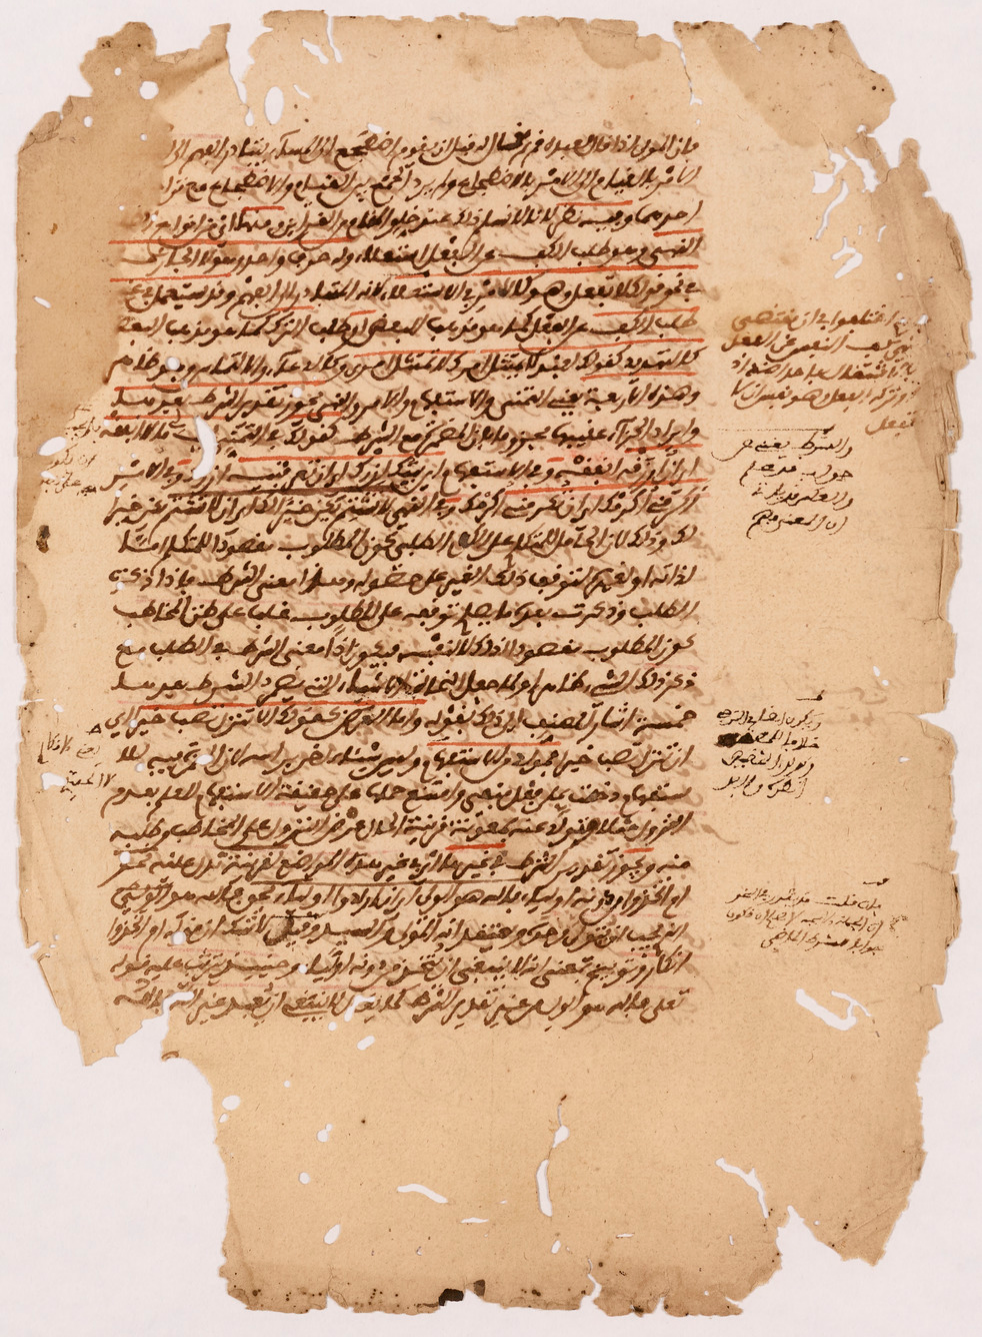 فان المولى اذا قال لعبده قم ثم قال له قبل ان يقوم اضطجع الى المساء يتبادر الفهم الى
الامر بالقيام الى الامر بالاضطجاع ولم يرد الجمع بين القيام والاضطجاع مع ترا
احدهما وفيه نظر لانا لا نسلم ذلك عند خلو المقام عن القرائن ومنها اي من انواع الطلب
النهي وهو طلب الكف عن الفعل استعلاء وله حرف واحد وهو لا الجازمة
في نحو قولك لا تفعل وهو كالامر في الاستعلاء لانه المتبادر الى الفهم وقد يستعمل في غير
طلب الكف عن الفعل كما هو مذهب البعض او طلب الترك كما هو مذهب البعض
كالتهديد كقولك لعبد لا يمتثل امرك لا تمتثل امري وكالدعاء والالتماس وهو ظاهر
وهذه الاربعة يعني التمني والاستفهام والامر والنهي يجوز تقدير الشرط بعدها
وايراد الجزاء عقيبها مجزوما بان المضمرة مع الشرط كقولك في التمني ليت لي مالا انفقه
اي ان ارزقه انفقه وفي الاستفهام اين بيتك ازرك اي ان تعرفنيه ازرك وفي الامر
اكرمني اكرمك اي ان تكرمني اكرمك وفي النهي لا تشتمني يكن خيرا لك اي ان لا تشتمني يكن خيرا
لك وذلك لان الحامل للمتكلم على الكلام الطلبي كون المطلوب مقصودا للمتكلم اما
لذاته او لغيره لتوقف ذلك الغير على حصوله وهذا معنى الشرط فاذا ذكرت
الطلب وذكرت بعده ما يصلح توقفه على المطلوب غلب على ظن المخاطب
كون المطلوب مقصودا لذلك لا لنفسه فيكون اذا معنى الشرط في الطلب مع
ذكر ذلك الشيء ظاهرا ولما جعل النحاة الاشياء التي يضمر الشرط بعدها
خمسة اشار المصنف الى ذلك بقوله واما العرض كقولك الا تنزل تصب خيرا اي
ان تنزل تصب خيرا فمولد من الاستفهام وليس شيئا آخر براسه لان الهمزة فيه للا
ستفهام دخلت على فعل منفي وامتنع حملها على حقيقة الاستفهام للعلم بعدم
النزول مثلا فتولد عنه بمعونة قرينة الحال عرض النزول على المخاطب وطلبه
منه ويجوز تقدير الشرط في غيرها اي في غير هذه المواضع لقرينة تدل عليه نحو
ام اتخذوا من دونه اولياء فالله هو الولي اي ان ارادوا اولياء بحق فالله هو الولي
الذي يجب ان يتولى وحده ويعتقد انه المولى والسيد وقيل لا شك ان قوله ام اتخذوا
انكار وتوبيخ بمعنى انه لا ينبغي ان يتخذ من دونه اولياء وحينئذ يترتب عليه قوله
تعالى فالله هو الولي من غير تقدير الشرط كما يقال لا ينبغي ان يعبد غير الله فالله
اختلفوا في ان مقتضى
النهي كف النفس عن الفعل
بالاشتغال باحد اضداده
او ترك الفعل وهو نفس ان لا
تفعل